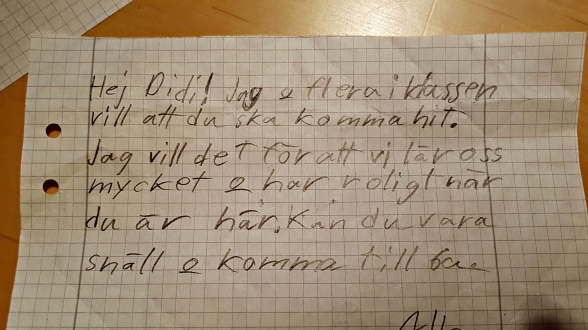 Hej Didi! Jag o flera i klassen
vill att du ska komma hit.
Jag vill det för att vi lär oss
mycket o har roligt när
du är här. Kan du vara
snäll o komma till ba